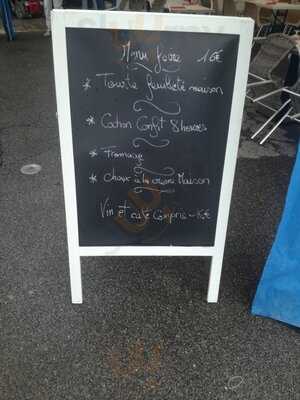 Menu foire 16€
* Tourte feuilleté maison
* Cochon Confit 8 heures
* Fromage
* choux à la crème Maison
Vin et café Compris